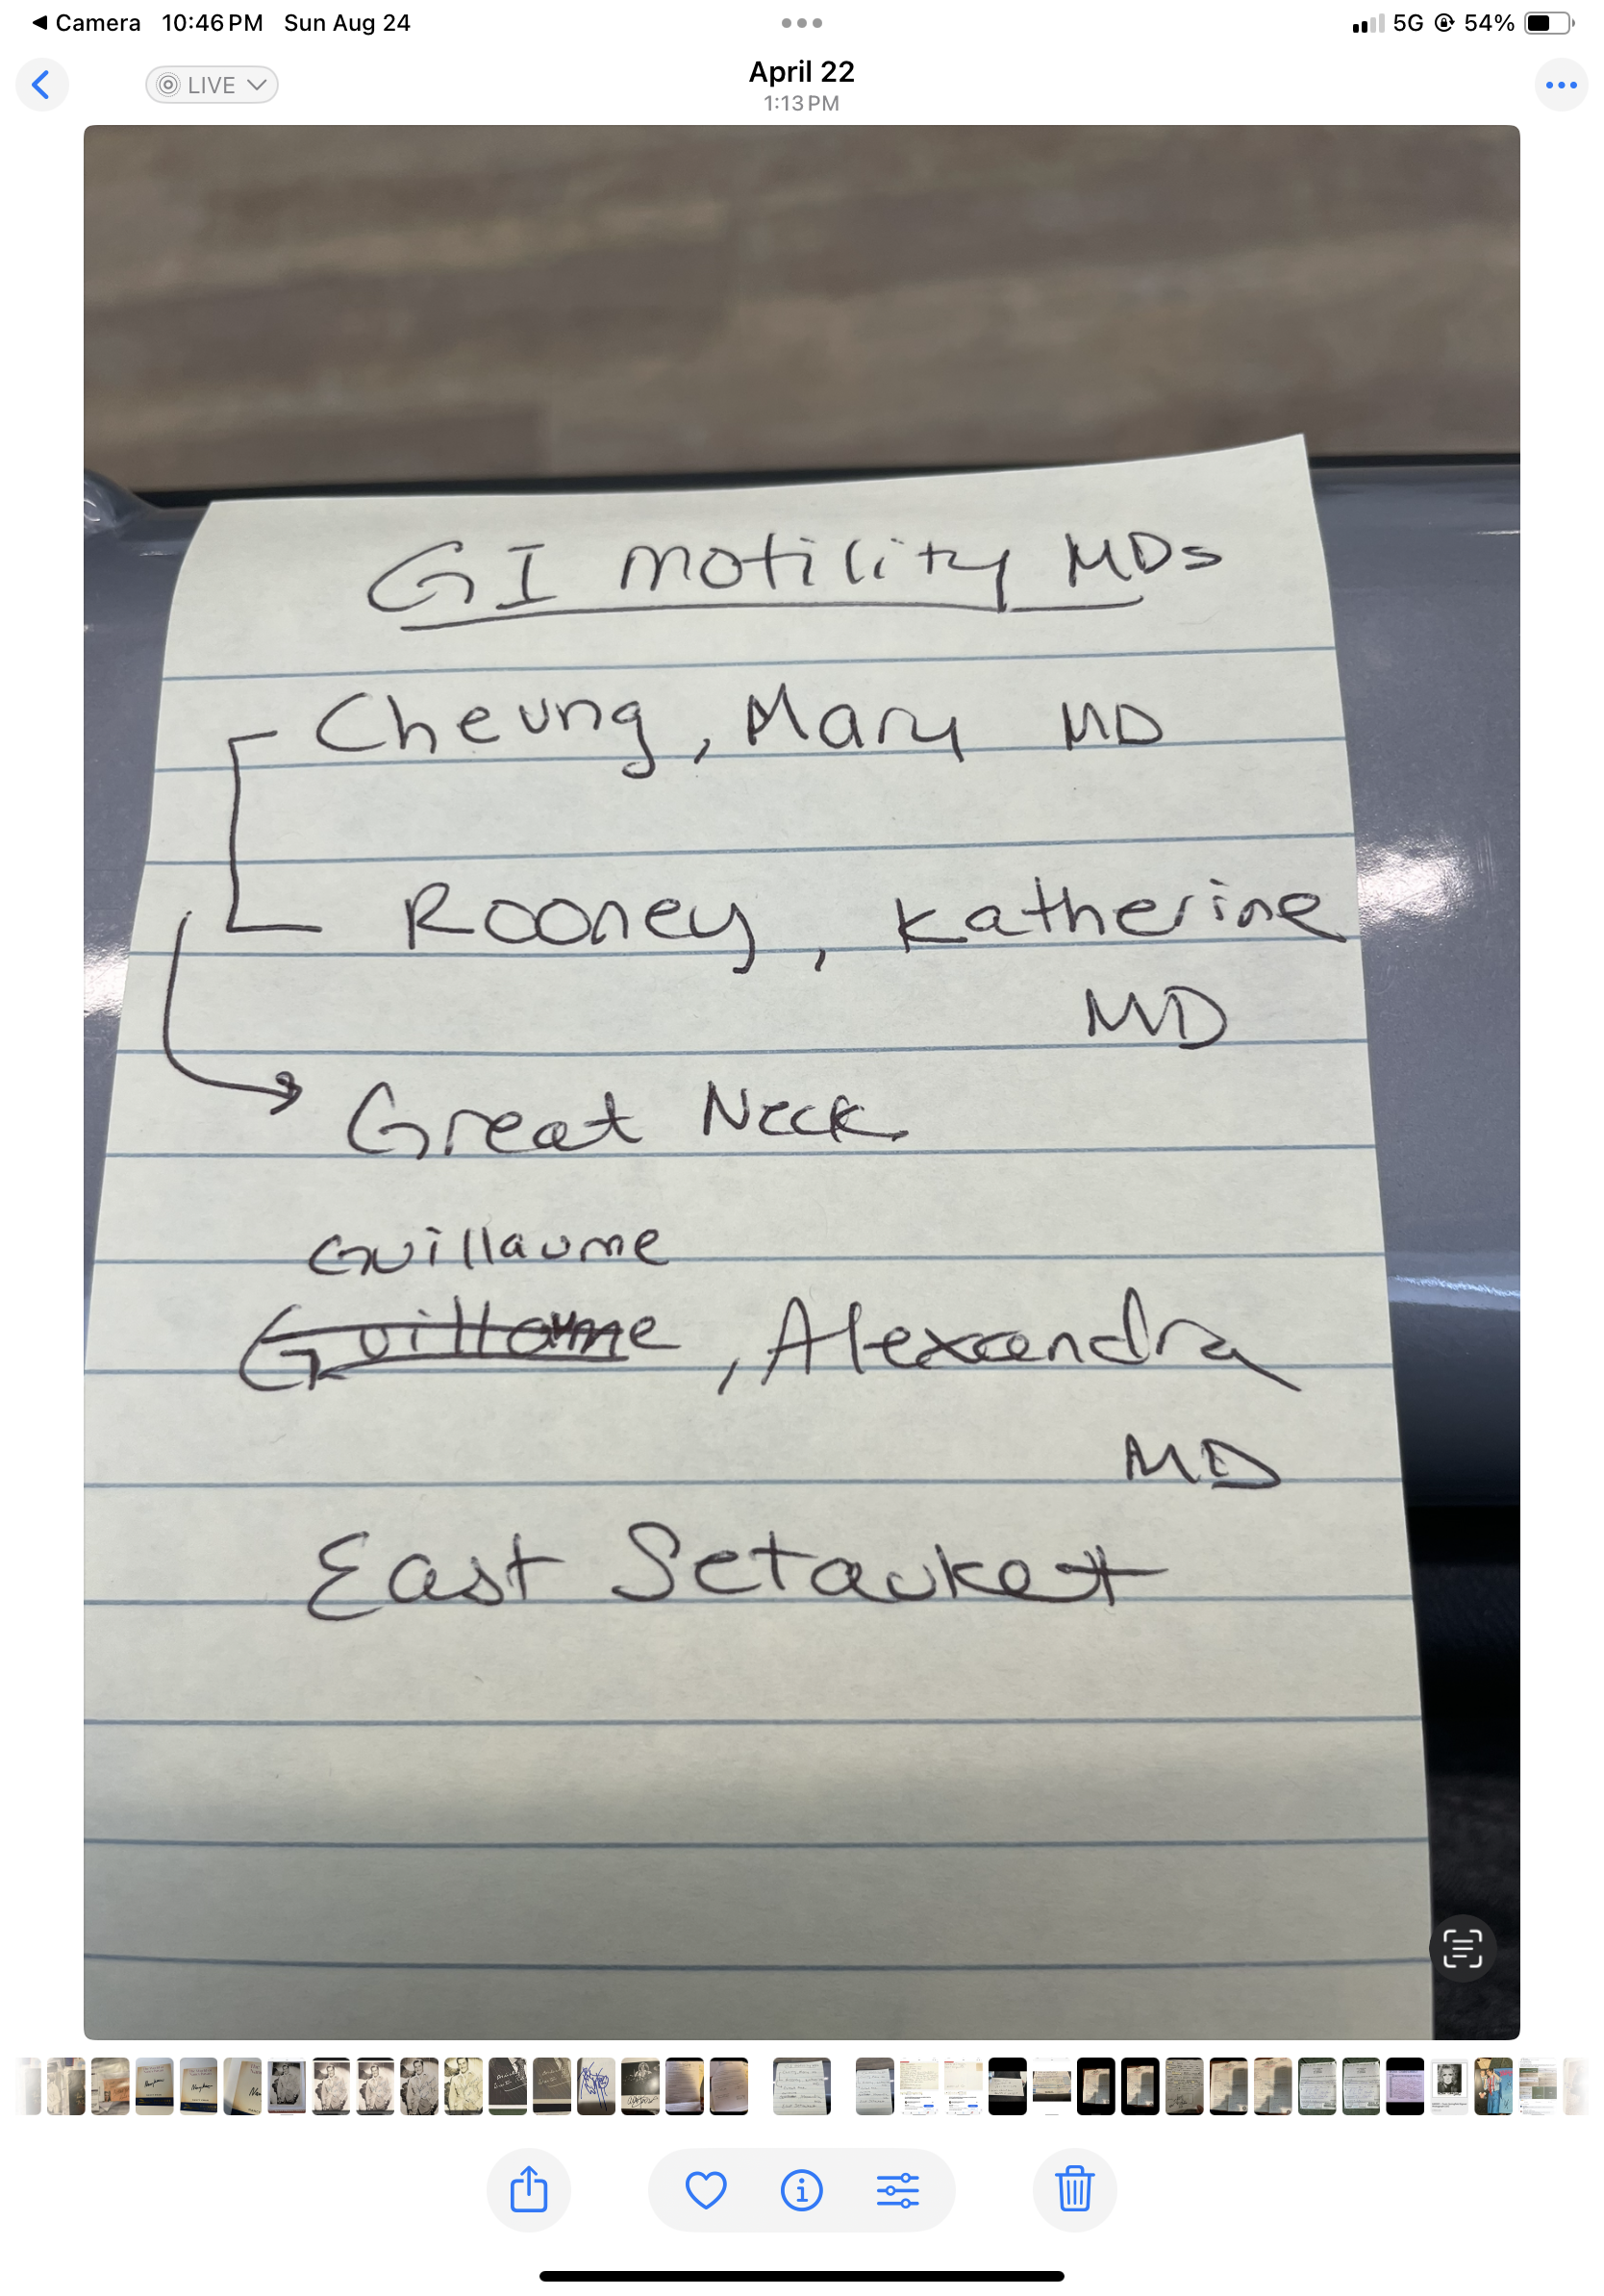 Camera 10:46 PM Sun Aug 24
5G 54%
LIVE
April 22
1:13 PM
GI motility MDs
Cheung, Mary MD
Rooney, Katherine
MD
Great Neck
Guillaume
Guillaume, Alexandra
MD
East Setauket